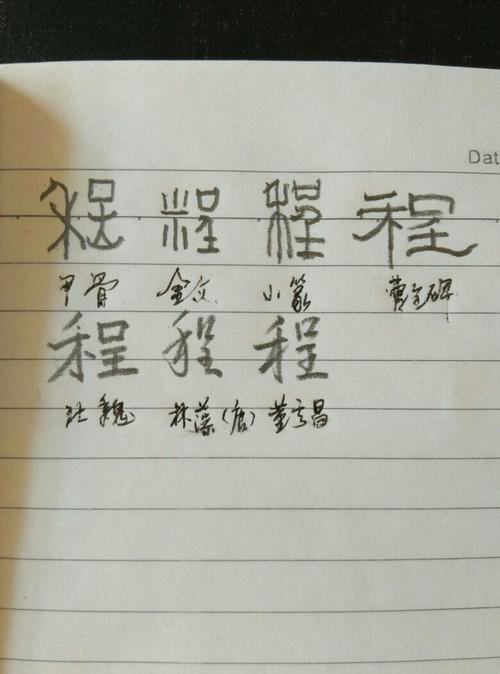 Dat
程 程 程 程
甲骨 金文 小篆 曹全碑
程 程 程
北魏 林藻(唐) 董其昌